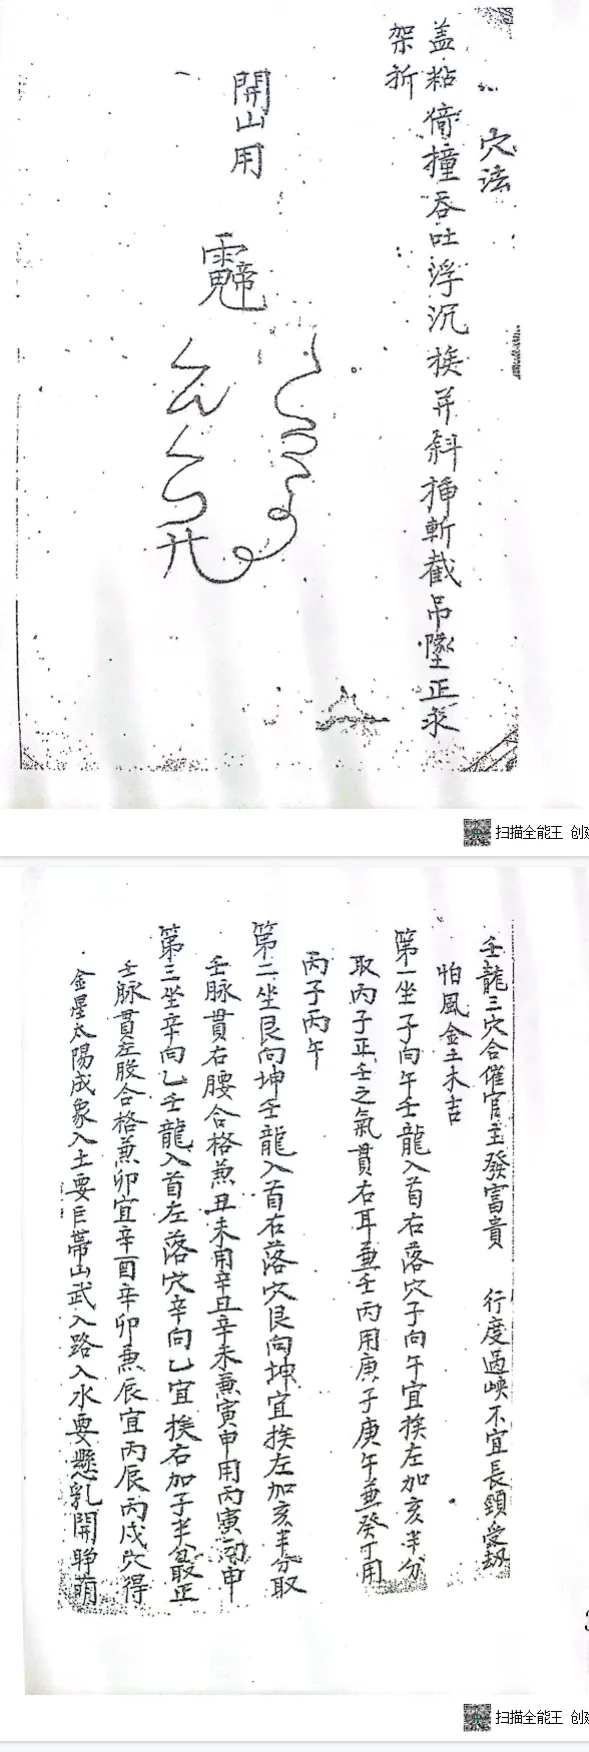 穴法
盖粘倚撞吞吐浮沉挨并斜插斬截吊墜正求
架折
開山用
扫描全能王 创建
壬龍三穴合催官主發富貴 行度過峽不宜長頸受劫
怕風金土未吉
第一坐子向午壬龍入首右落穴子向午宜挨左加亥半分
取丙子正壬之氣貫右耳兼壬丙用庚子庚午兼癸丁用
丙子丙午
第二坐艮向坤壬龍入首右落穴艮向坤宜挨左加亥半分取
壬脉貫右腰合格兼丑未用辛丑辛未兼寅申用丙寅丙申
第三坐辛向乙壬龍入首左落穴辛向乙宜挨右加子半分取正
壬脉貫左股合格兼卯宜辛酉辛卯兼辰宜丙辰丙戌穴得
金星太陽成象入土要巨帶山武入路入水要懸乳開睜萌
扫描全能王 创建